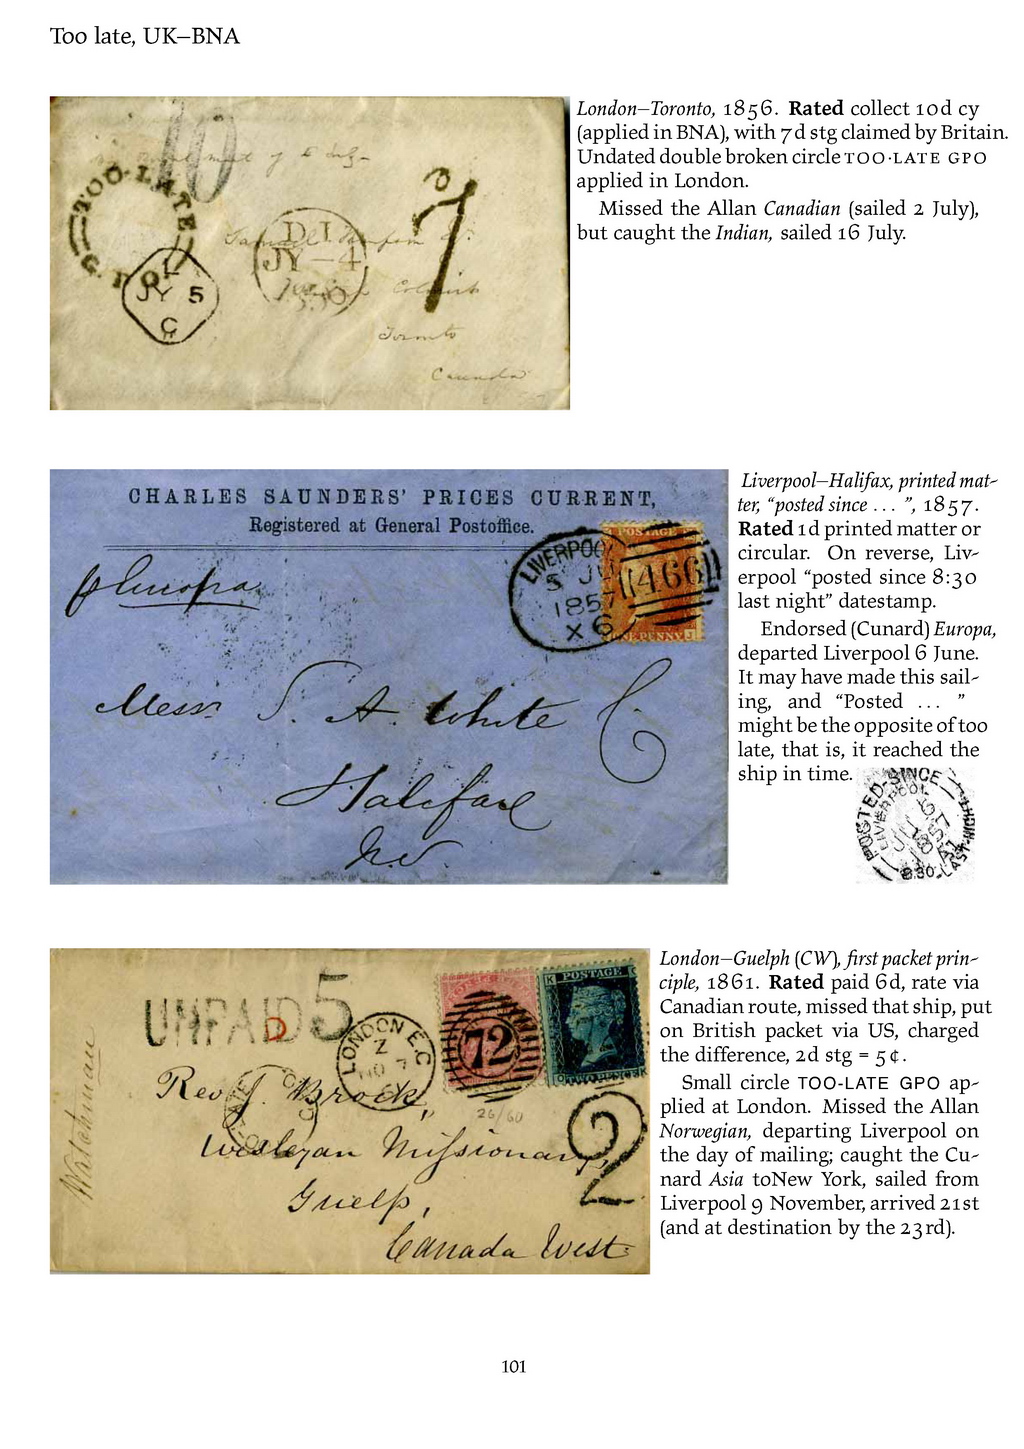 Too late, UK–BNA
London–Toronto, 1856. Rated collect 10d cy
(applied in BNA), with 7d stg claimed by Britain.
Undated double broken circle TOO·LATE GPO
applied in London.
Missed the Allan Canadian (sailed 2 July),
but caught the Indian, sailed 16 July.
10
TOO·LATE
G.P.O
L
JY 5
C
D I
JY–4
7
Toronto
Canada
CHARLES SAUNDERS' PRICES CURRENT,
Registered at General Postoffice.
p Europa
LIVERPOOL
5 JU
1857
X6
466
POSTAGE
ONE PENNY
J
Messr S. A. White C.
Halifax
N.S.
Liverpool–Halifax, printed mat-
ter, “posted since ... ”, 1857.
Rated 1d printed matter or
circular. On reverse, Liv-
erpool “posted since 8:30
last night” datestamp.
Endorsed (Cunard) Europa,
departed Liverpool 6 June.
It may have made this sail-
ing, and “Posted ... ”
might be the opposite of too
late, that is, it reached the
ship in time.
POSTED-SINCE
LIVERPOOL
1857
8.30-LAST-NIGHT
UNPAID 5
D
LONDON E.C
Z
NO 7
72
K POSTAGE
TWO PENCE
Watchman
Rev J. Brock,
26/60
Wesleyan Missionary,
2
Guelp,
Canada West
London–Guelph (CW), first packet prin-
ciple, 1861. Rated paid 6d, rate via
Canadian route, missed that ship, put
on British packet via US, charged
the difference, 2d stg = 5¢.
Small circle TOO-LATE GPO ap-
plied at London. Missed the Allan
Norwegian, departing Liverpool on
the day of mailing; caught the Cu-
nard Asia toNew York, sailed from
Liverpool 9 November, arrived 21st
(and at destination by the 23rd).
101